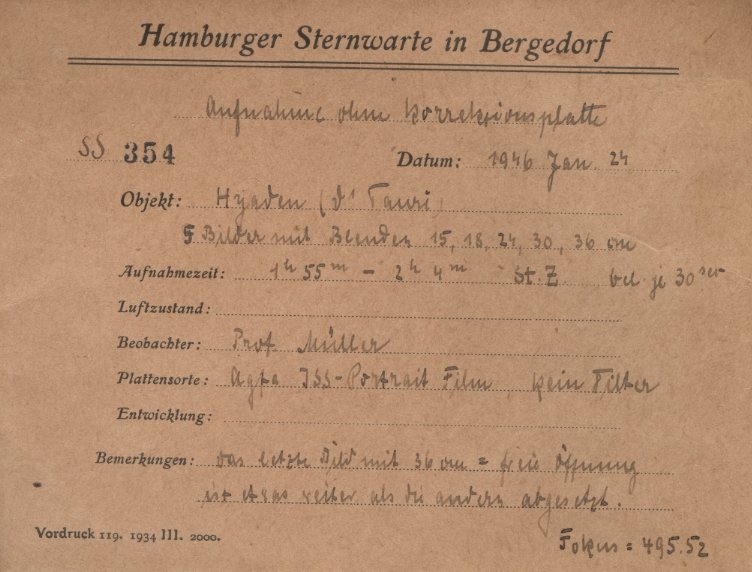 Hamburger Sternwarte in Bergedorf
Aufnahme ohne Korrektionsplatte
SS 354 Datum: 1946 Jan. 24
Objekt: Hyaden (δ¹ Tauri)
5 Bilder mit Blenden 15, 18, 24, 30, 36 cm
Aufnahmezeit: 1ʰ 55ᵐ – 2ʰ 4ᵐ St. Z bel. je 30 sec
Luftzustand:
Beobachter: Prof. Müller
Plattensorte: Agfa ISS-Portrait Film, kein Filter
Entwicklung:
Bemerkungen: Das letzte Bild mit 36 cm = freie Öffnung
ist etwas weiter als die andern abgesetzt.
Vordruck 119. 1934 III. 2000.
Fokus = 495.52